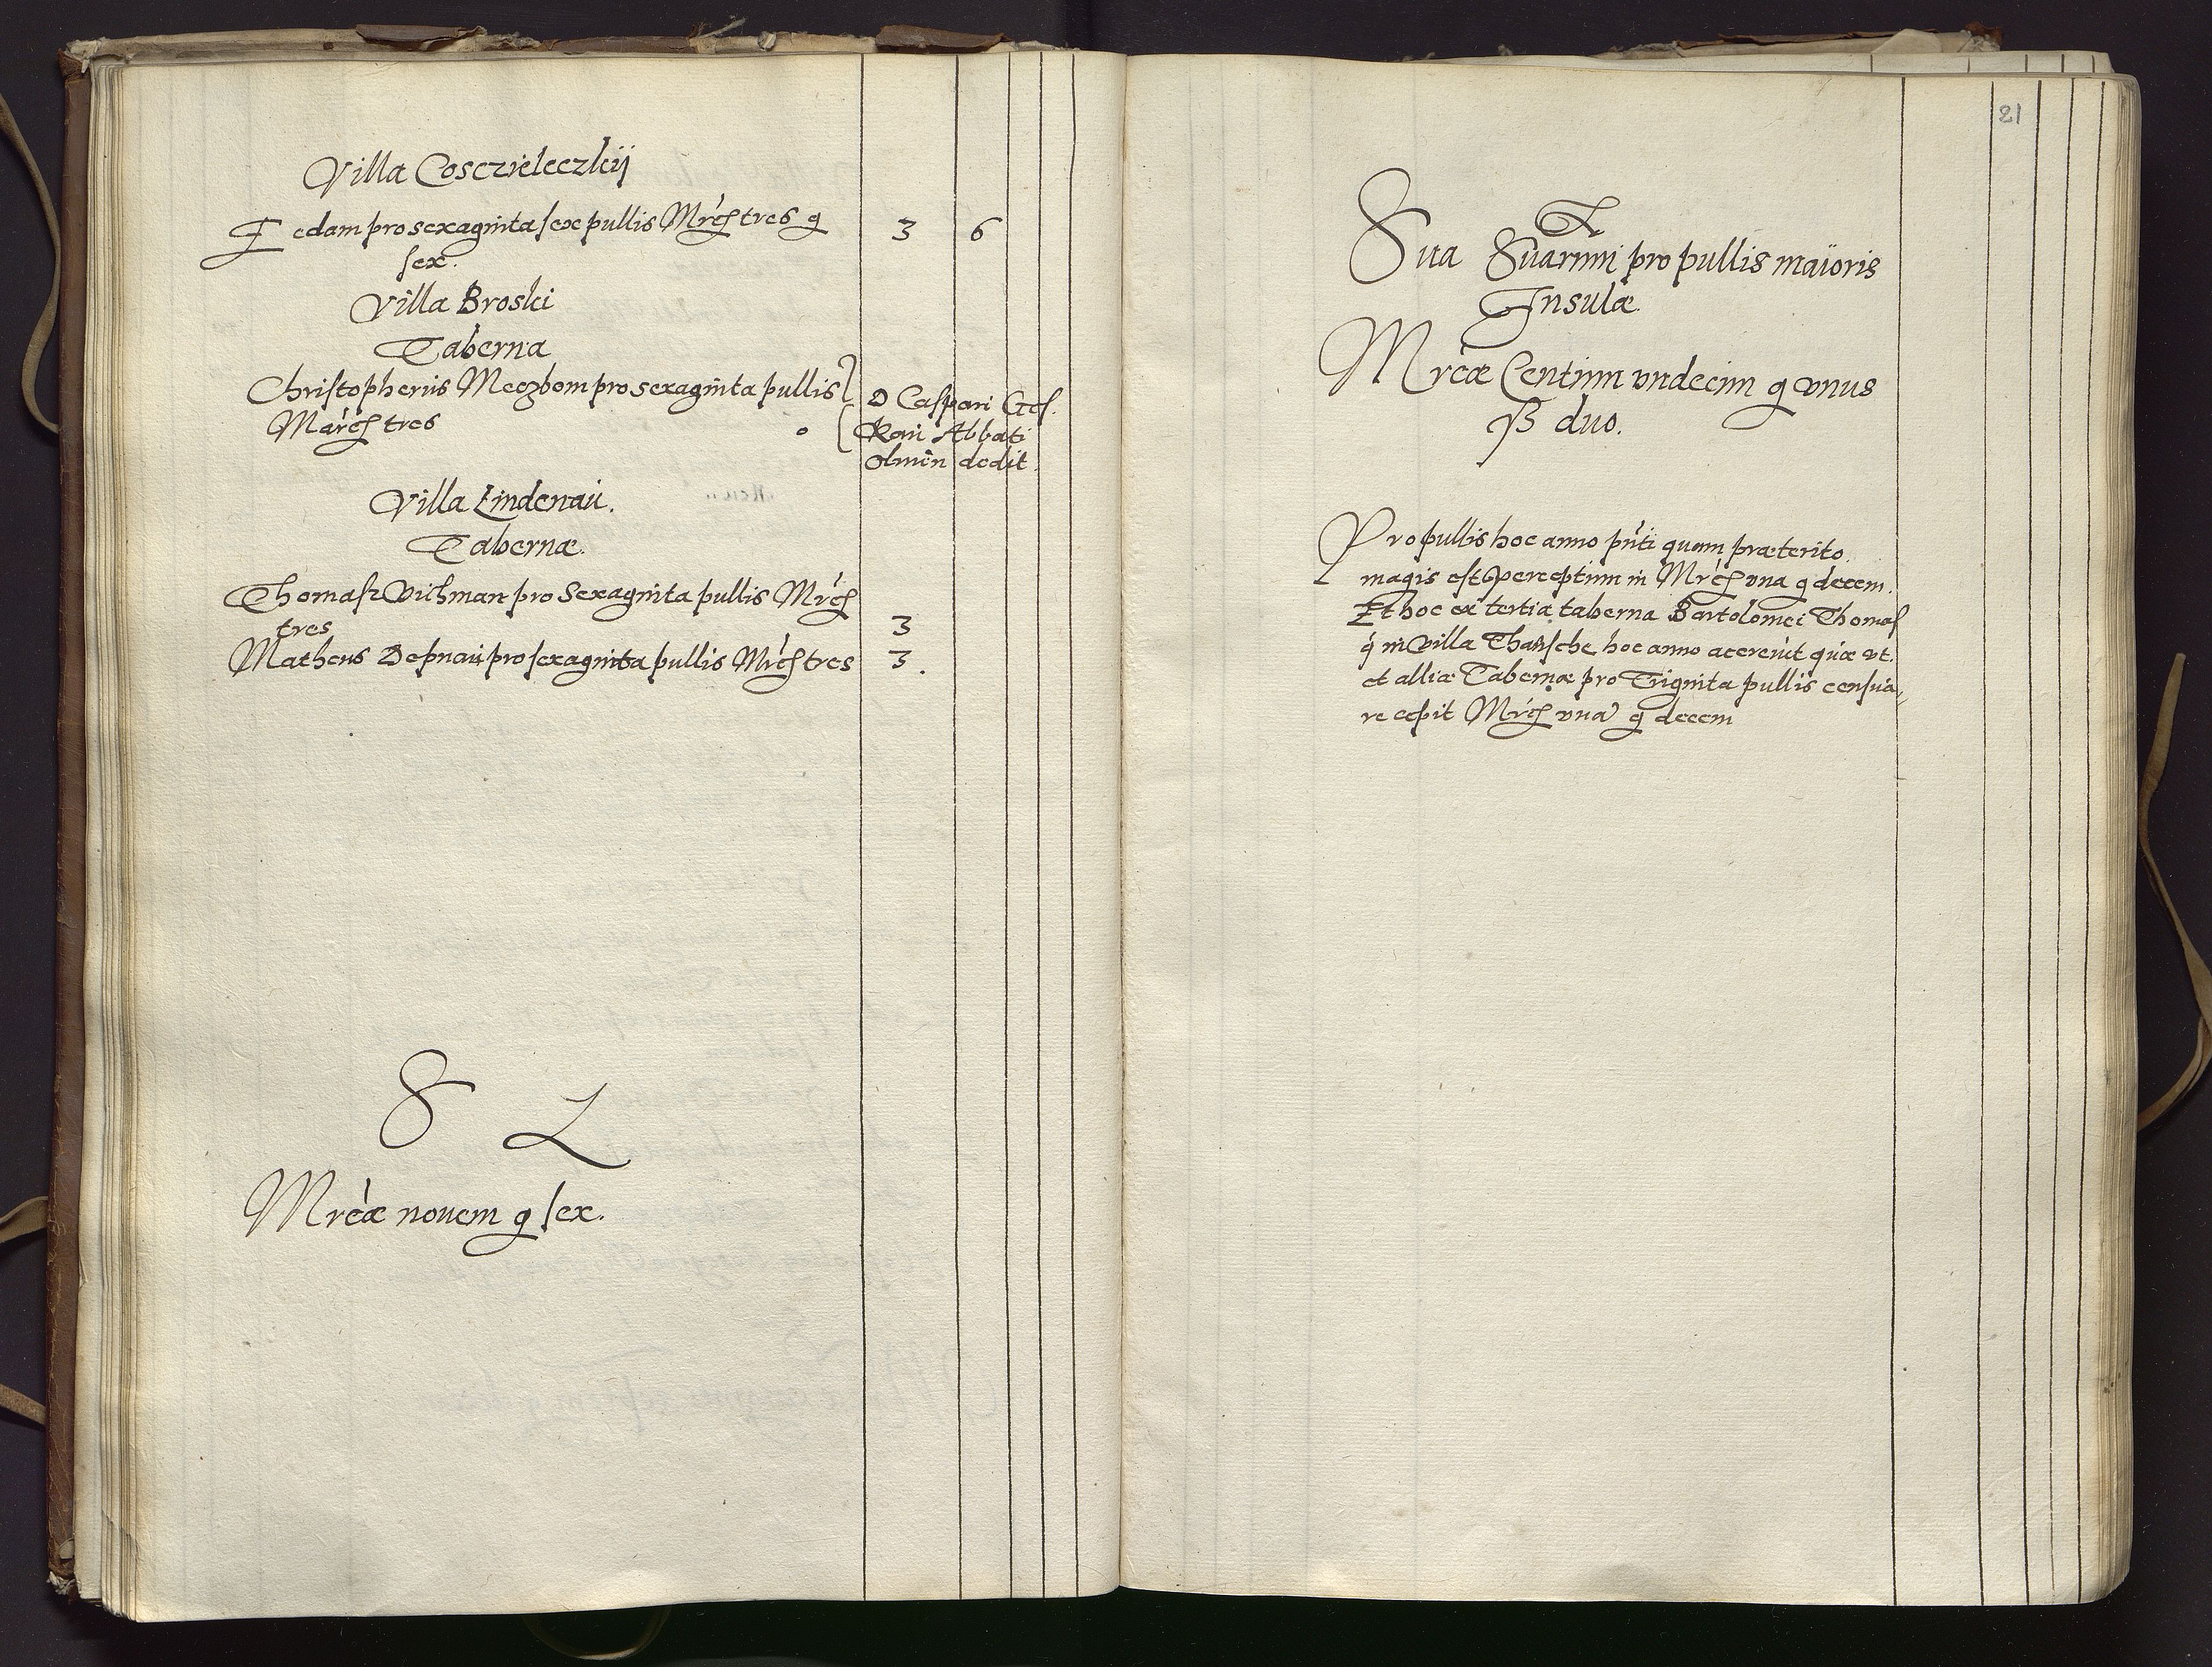 Villa Cosczieleczkÿ
Eedam pro sexaginta sex pullis Mrcs tres g 3 6
sex.
Villa Broski
Taberna
Christopherus Meczbom pro sexaginta pullis
Marcs tres
D Caspari Ges.
kaui Abbati
Oliuen dedit.
Villa Lindenau.
Tabernæ.
Thomas Vichman pro Sexaginta pullis Mrcs
tres 3
Matheus Depnau pro sexaginta pullis Mrcs tres 3
S L
Mrcæ nouem g sex.
21
Sua Suarum pro pullis maioris
Insulæ
Mrcæ Centum vndecim g vnus
ß duo.
Pro pullis hoc anno pnti quam præterito
magis est perceptum in Mrcs vna g decem.
Et hoc ex tertia taberna Bartolomei Thomas
q in Villa Thansche hoc anno acreuit quæ vt
et alliæ Tabernæ pro Triginta pullis censua,
re cepit Mrcs vna g decem